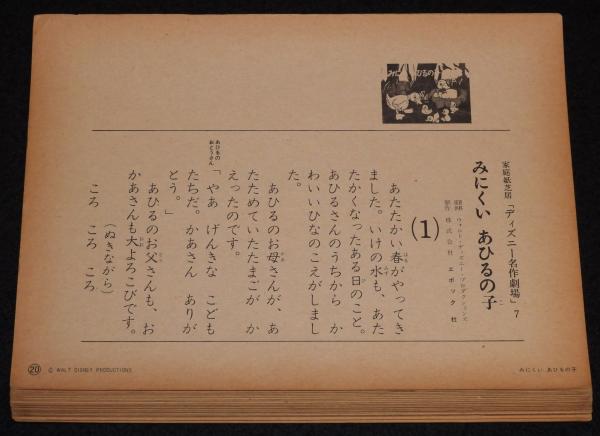 みにくいあひるの子
家庭紙芝居「ディズニー名作劇場」7
みにくい あひるの子
ウォルト・ディズニー・プロダクションズ
製作 株式会社 エポック社
(1)
あたたかい春がやってき
ました。いけの水も、あた
たかくなったある日のこと。
あひるさんのうちから か
わいいひなのこえがしまし
た。
あひるのお母さんが、あ
たためていたたまごが か
えったのです。
あひるの
おとうさん
「やあ げんきな こども
たちだ。かあさん ありが
とう。」
あひるのお父さんも、お
かあさんも大よろこびです。
(ぬきながら)
ころ ころ ころ
⑳ © WALT DISNEY PRODUCTIONS
みにくい あひるの子